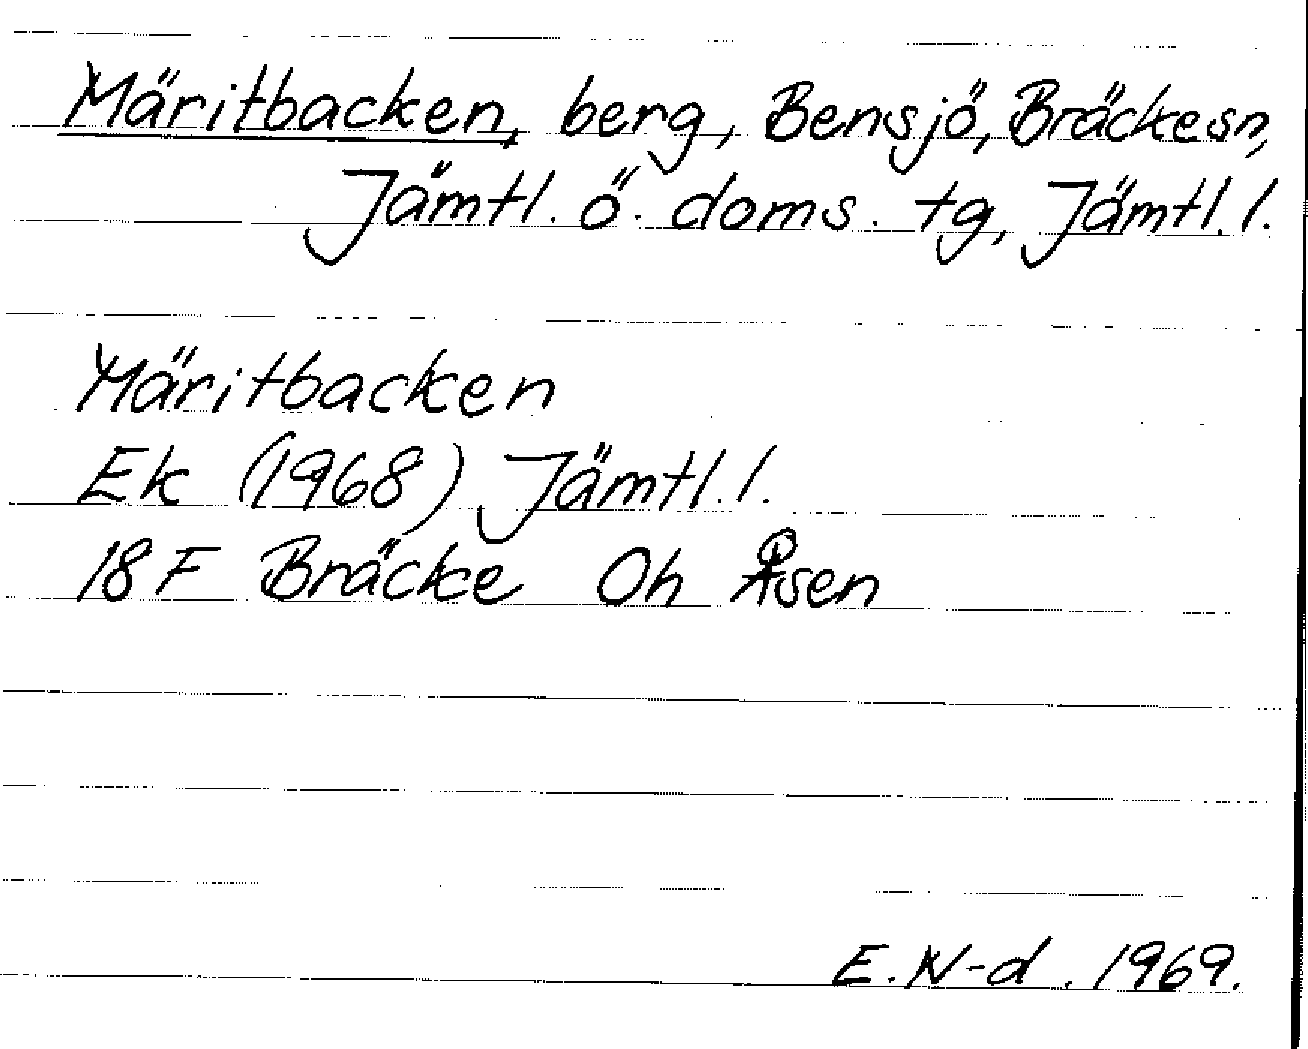 Märitbacken, berg, Bensjö, Bräckesn,
Jämtl. ö. doms. tg, Jämtl. l.
Märitbacken
Ek (1968) Jämtl. l.
18 F Bräcke Oh Åsen
E. N-d. 1969.